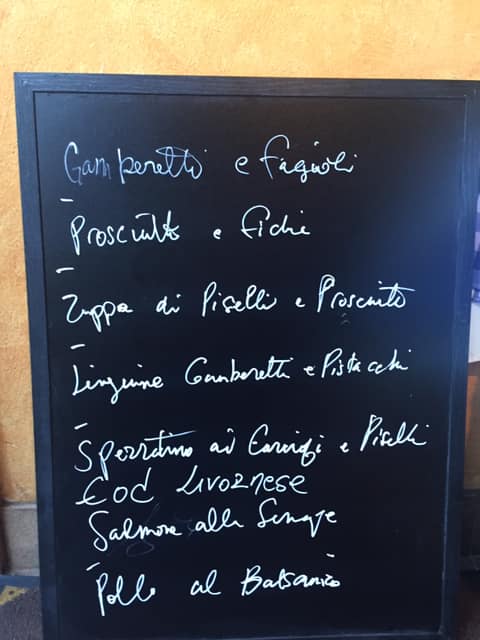 Gamberetti e fagioli
Prosciutto e fichi
Zuppa di Piselli e Prosciutto
Linguine Gamberetti e Pistacchi
e Piselli
Cod Livornese
Salmone alla Senape
Pollo al Balsamico